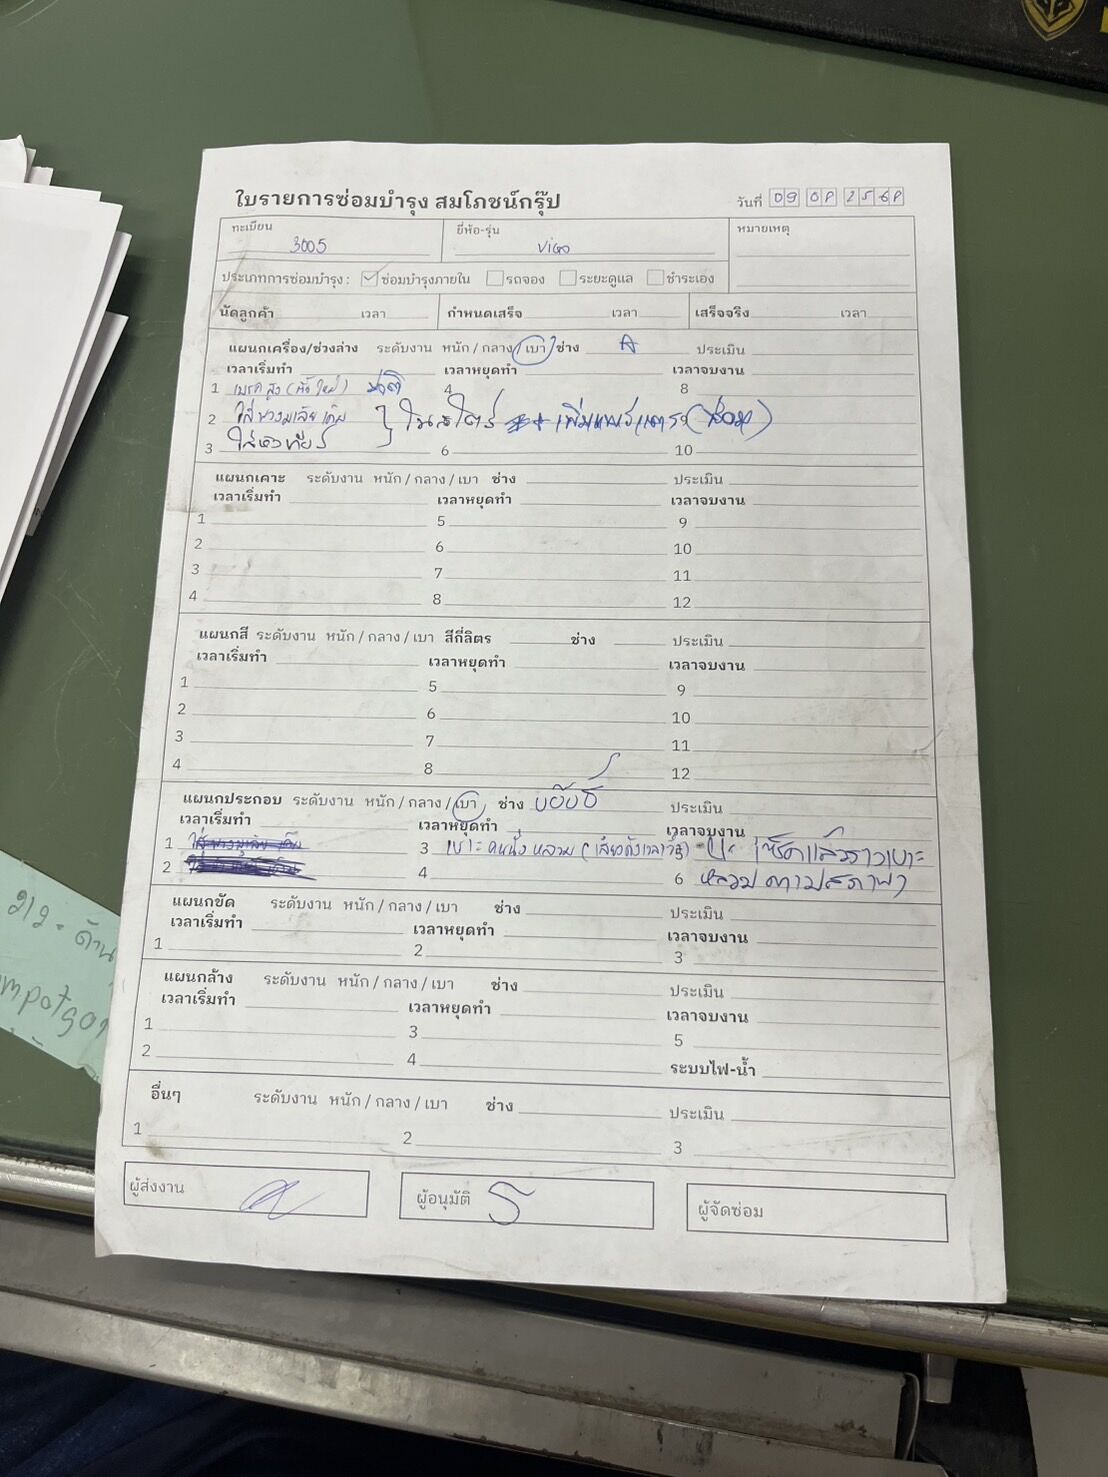 ใบรายการซ่อมบำรุง สมโภชน์กรุ๊ป
วันที่ 09
ทะเบียน 3005 ยี่ห้อ-รุ่น Vigo หมายเหตุ
ประเภทการซ่อมบำรุง : ซ่อมบำรุงภายใน รถจอง ระยะดูแล ชำระเอง
นัดลูกค้า เวลา กำหนดเสร็จ เวลา เสร็จจริง เวลา
แผนกเครื่อง/ช่วงล่าง ระดับงาน หนัก / กลาง / เบา ช่าง A ประเมิน
เวลาเริ่มทำ เวลาหยุดทำ เวลาจบงาน
1 เบรคสูง (ตั้งใหม่) ปกติ 4 8
2 ใส่พวงมาลัยเดิม
3 ใส่หัวเกียร์ 6 10
แผนกเคาะ ระดับงาน หนัก / กลาง / เบา ช่าง ประเมิน
เวลาเริ่มทำ เวลาหยุดทำ เวลาจบงาน
1 5 9
2 6 10
3 7 11
4 8 12
แผนกสี ระดับงาน หนัก / กลาง / เบา สีกี่ลิตร ช่าง ประเมิน
เวลาเริ่มทำ เวลาหยุดทำ เวลาจบงาน
1 5 9
2 6 10
3 7 11
4 8 12
แผนกประกอบ ระดับงาน หนัก / กลาง / เบา ช่าง ประเมิน
เวลาเริ่มทำ เวลาหยุดทำ เวลาจบงาน
1 ใส่พวงมาลัยเดิม 3 เบาะคนนั่งหลวม 5
2 4 6 หลวมตามสภาพ
แผนกขัด ระดับงาน หนัก / กลาง / เบา ช่าง ประเมิน
เวลาเริ่มทำ เวลาหยุดทำ เวลาจบงาน
1 2 3
แผนกล้าง ระดับงาน หนัก / กลาง / เบา ช่าง ประเมิน
เวลาเริ่มทำ เวลาหยุดทำ เวลาจบงาน
1 3 5
2 4 ระบบไฟ-น้ำ
อื่นๆ ระดับงาน หนัก / กลาง / เบา ช่าง ประเมิน
1 2 3
ผู้ส่งงาน ผู้อนุมัติ ผู้จัดซ่อม
212 = ด้าน